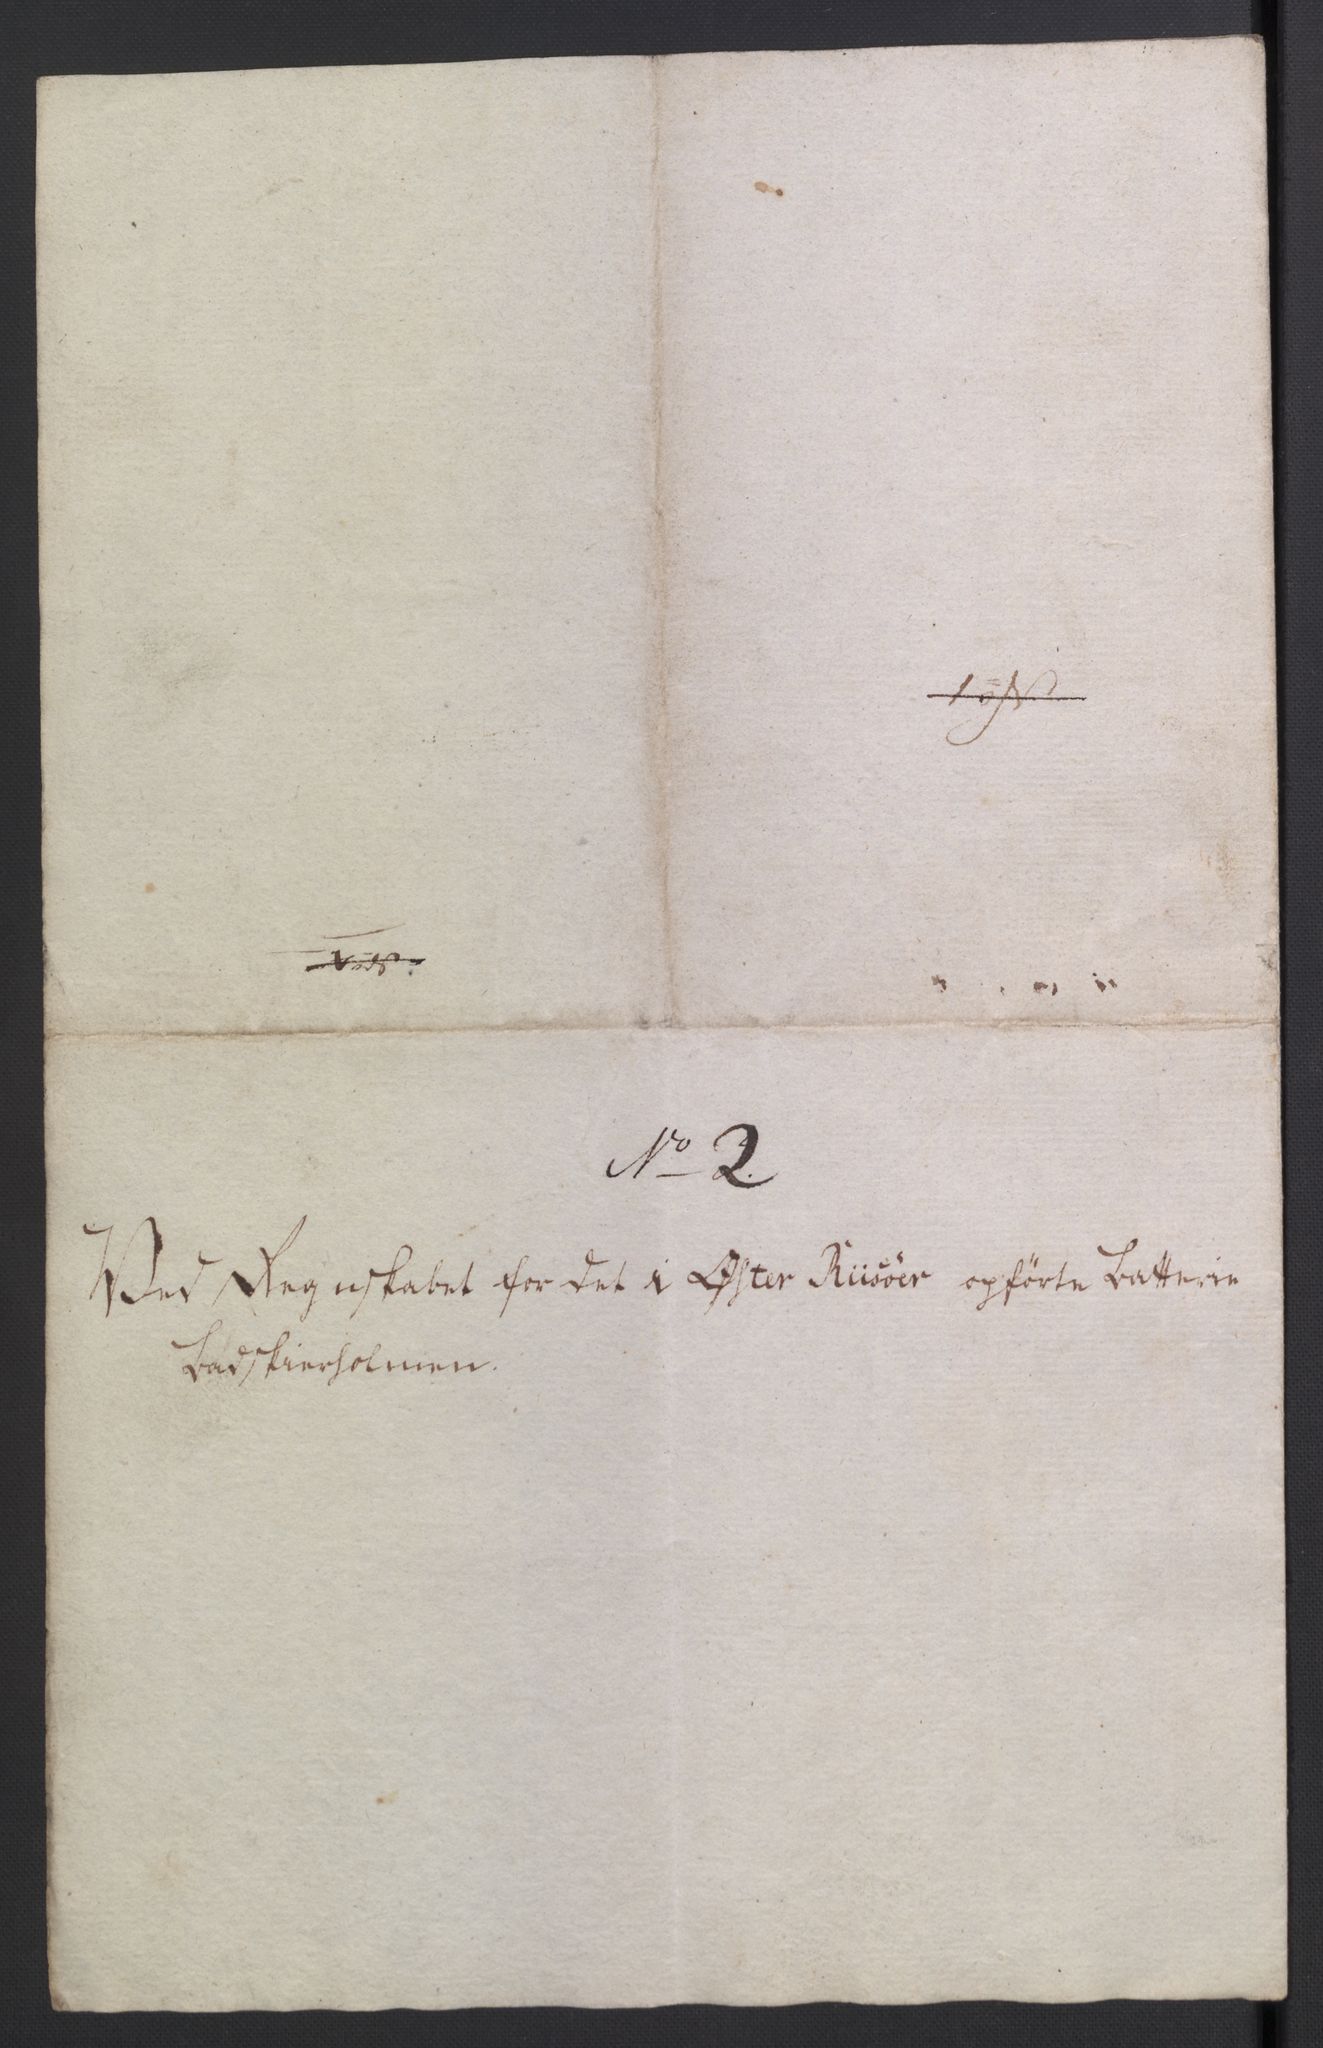 No 2.
Ved Regnskabet for det i Øster Riisöer opförte Batterie
Badskierholmen.